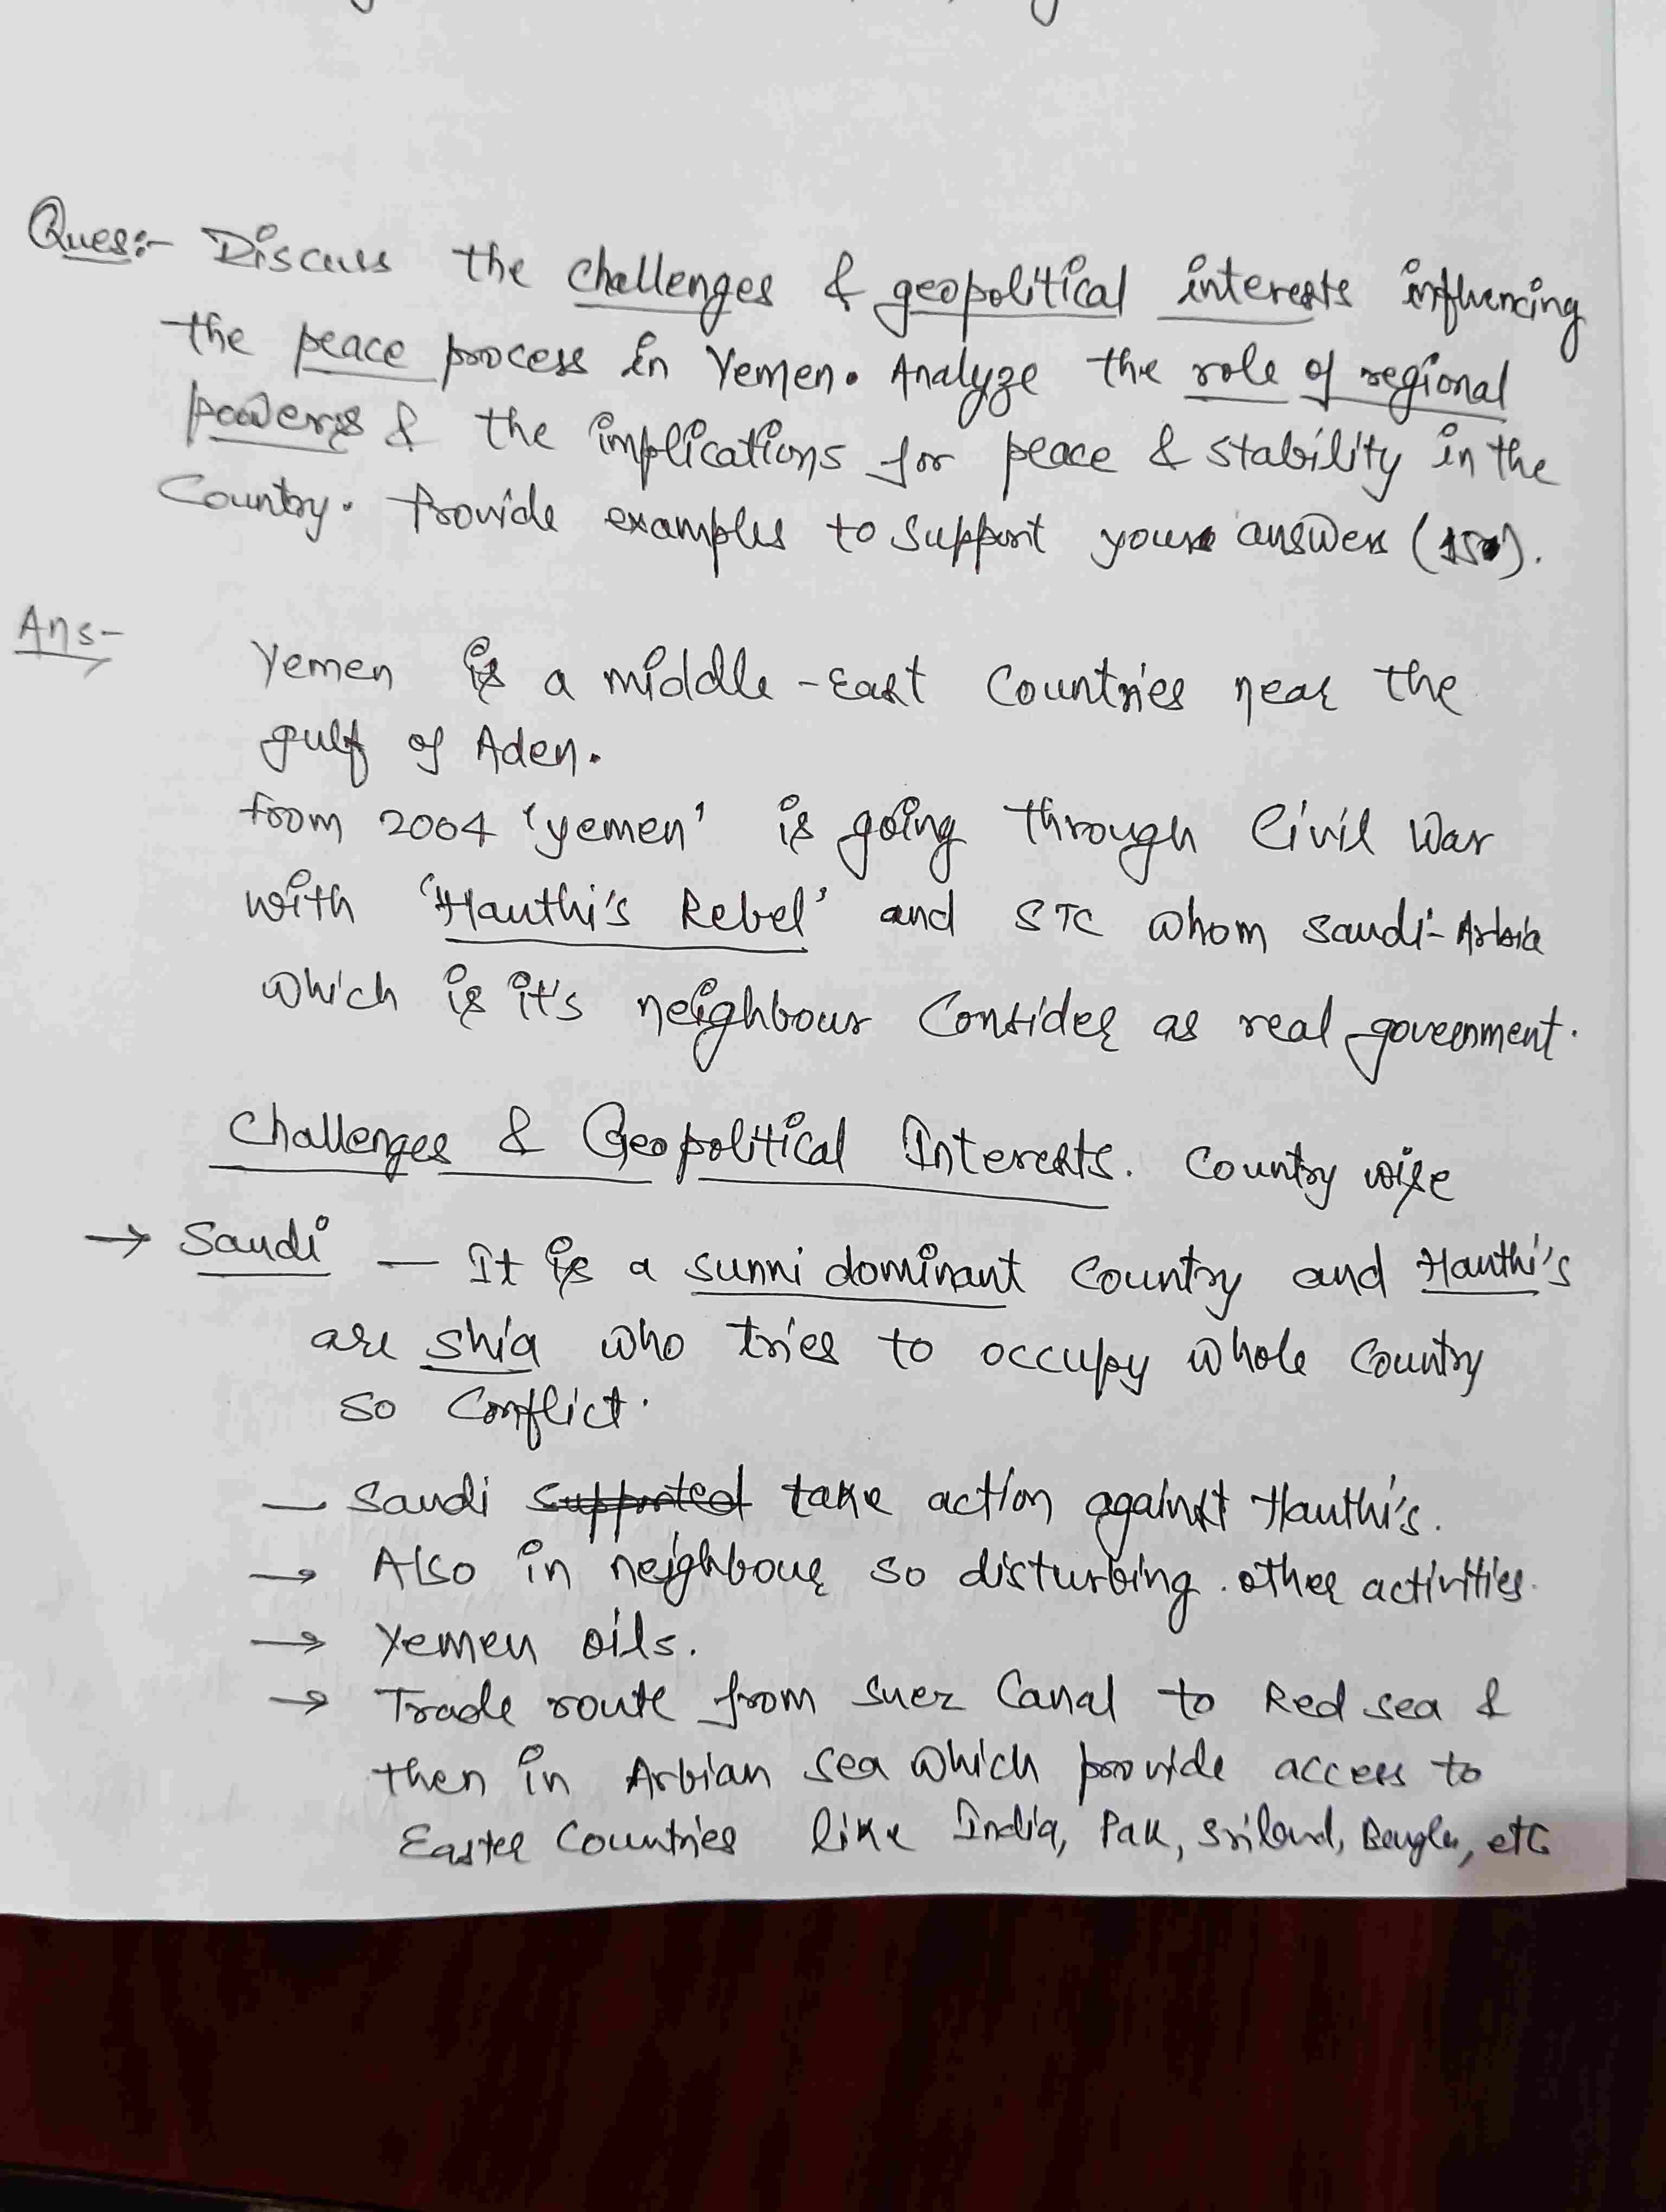 Ques:- Discuss the challenges & geopolitical interests influencing
the peace process in Yemen. Analyze the role of regional
powers & the implications for peace & stability in the
Country. Provide examples to support your answer (150).
Ans- Yemen is a middle-east Countries near the
gulf of Aden.
from 2004 'yemen' is going through Civil War
with 'Hauthi's Rebel' and STC whom Saudi-Arbia
which is it's neighbour Consider as real government.
Challenges & Geopolitical Interests. Country wise
→ Saudi — It is a sunni dominant Country and Hauthi's
are shia who tries to occupy whole Country
so Conflict.
— Saudi supported take action against Hauthi's.
→ Also in neighbour so disturbing other activities.
→ Yemen oils.
→ Trade route from Suez Canal to Red sea &
then in Arbian Sea which provide access to
Easter Countries like India, Pak, Sriland, etc